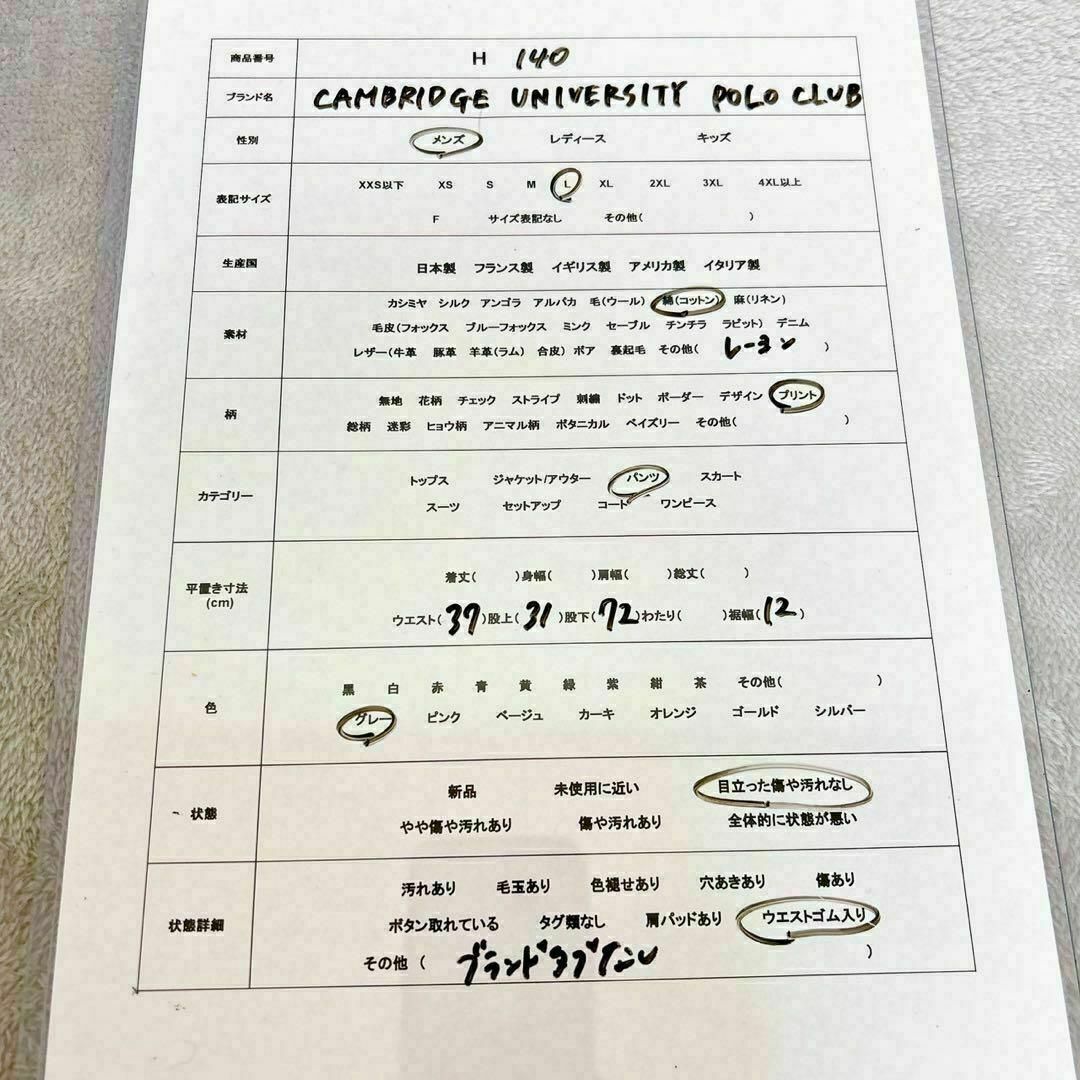 商品番号 H 140
ブランド名 CAMBRIDGE UNIVERSITY POLO CLUB
性別 メンズ レディース キッズ
表記サイズ
XXS以下 XS S M L XL 2XL 3XL 4XL以上
F サイズ表記なし その他( )
生産国 日本製 フランス製 イギリス製 アメリカ製 イタリア製
素材
カシミヤ シルク アンゴラ アルパカ 毛(ウール) 綿(コットン) 麻(リネン)
毛皮(フォックス ブルーフォックス ミンク セーブル チンチラ ラビット) デニム
レザー(牛革 豚革 羊革(ラム) 合皮) ボア 裏起毛 その他( レーヨン )
柄
無地 花柄 チェック ストライプ 刺繍 ドット ボーダー デザイン プリント
総柄 迷彩 ヒョウ柄 アニマル柄 ボタニカル ペイズリー その他( )
カテゴリー
トップス ジャケット/アウター パンツ スカート
スーツ セットアップ コート ワンピース
平置き寸法
(cm)
着丈( )身幅( )肩幅( )総丈( )
ウエスト(37)股上(31)股下(72)わたり( )裾幅(12)
色
黒 白 赤 青 黄 緑 紫 紺 茶 その他( )
グレー ピンク ベージュ カーキ オレンジ ゴールド シルバー
状態
新品 未使用に近い 目立った傷や汚れなし
やや傷や汚れあり 傷や汚れあり 全体的に状態が悪い
状態詳細
汚れあり 毛玉あり 色褪せあり 穴あきあり 傷あり
ボタン取れている タグ類なし 肩パッドあり ウエストゴム入り
その他 ( ブランドタブなし )